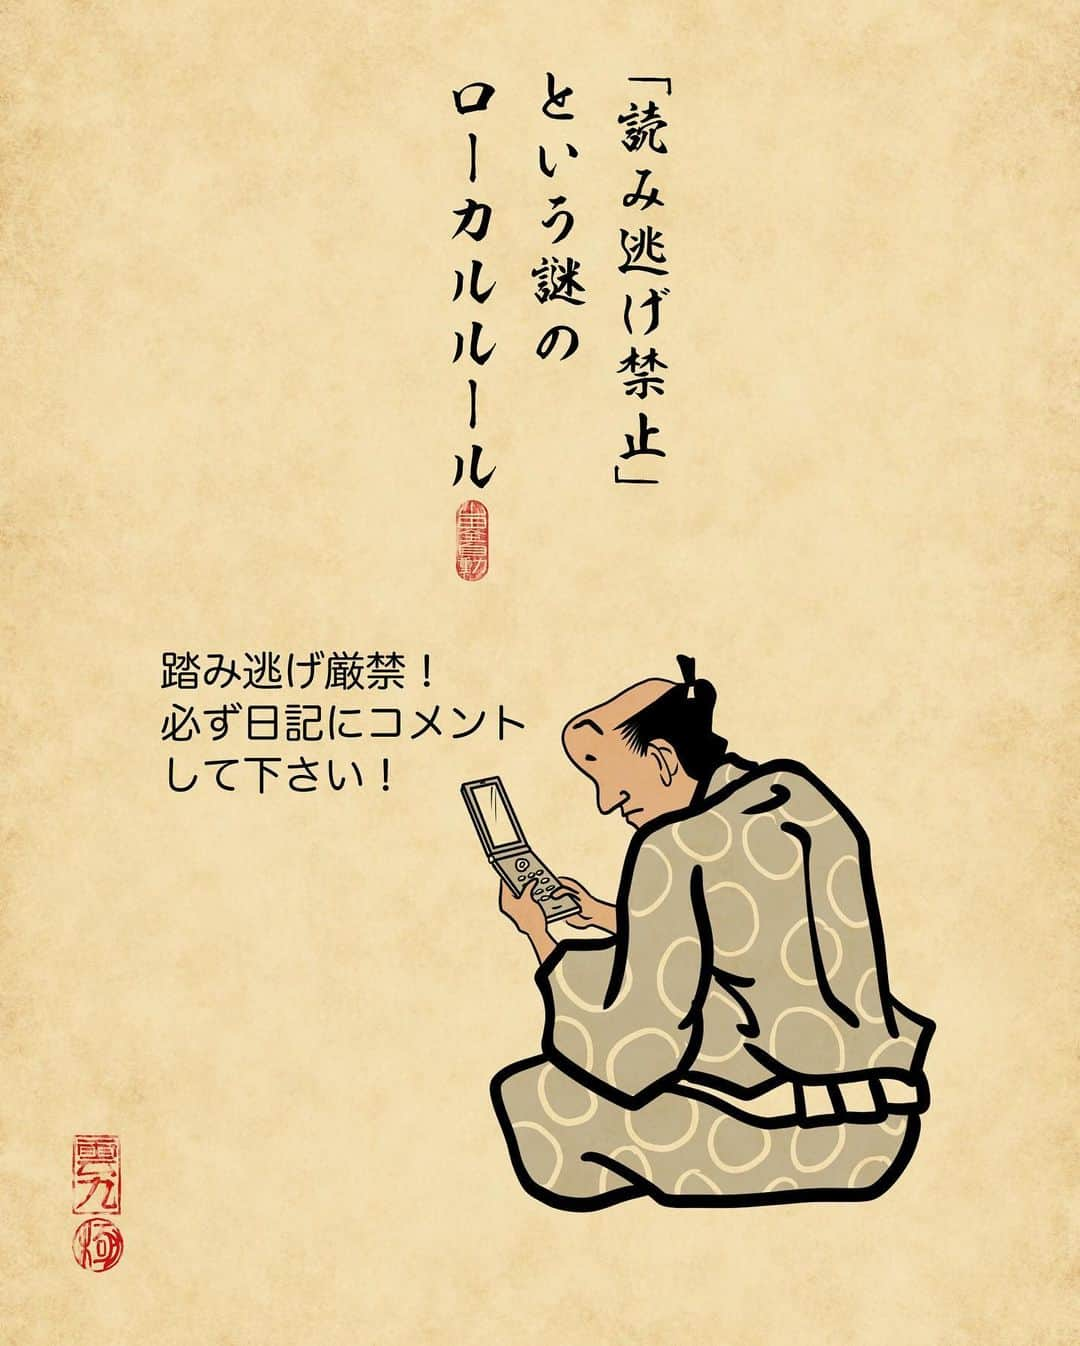 「読み逃げ禁止」
という謎の
ローカルルール
踏み逃げ厳禁！
必ず日記にコメント
して下さい！